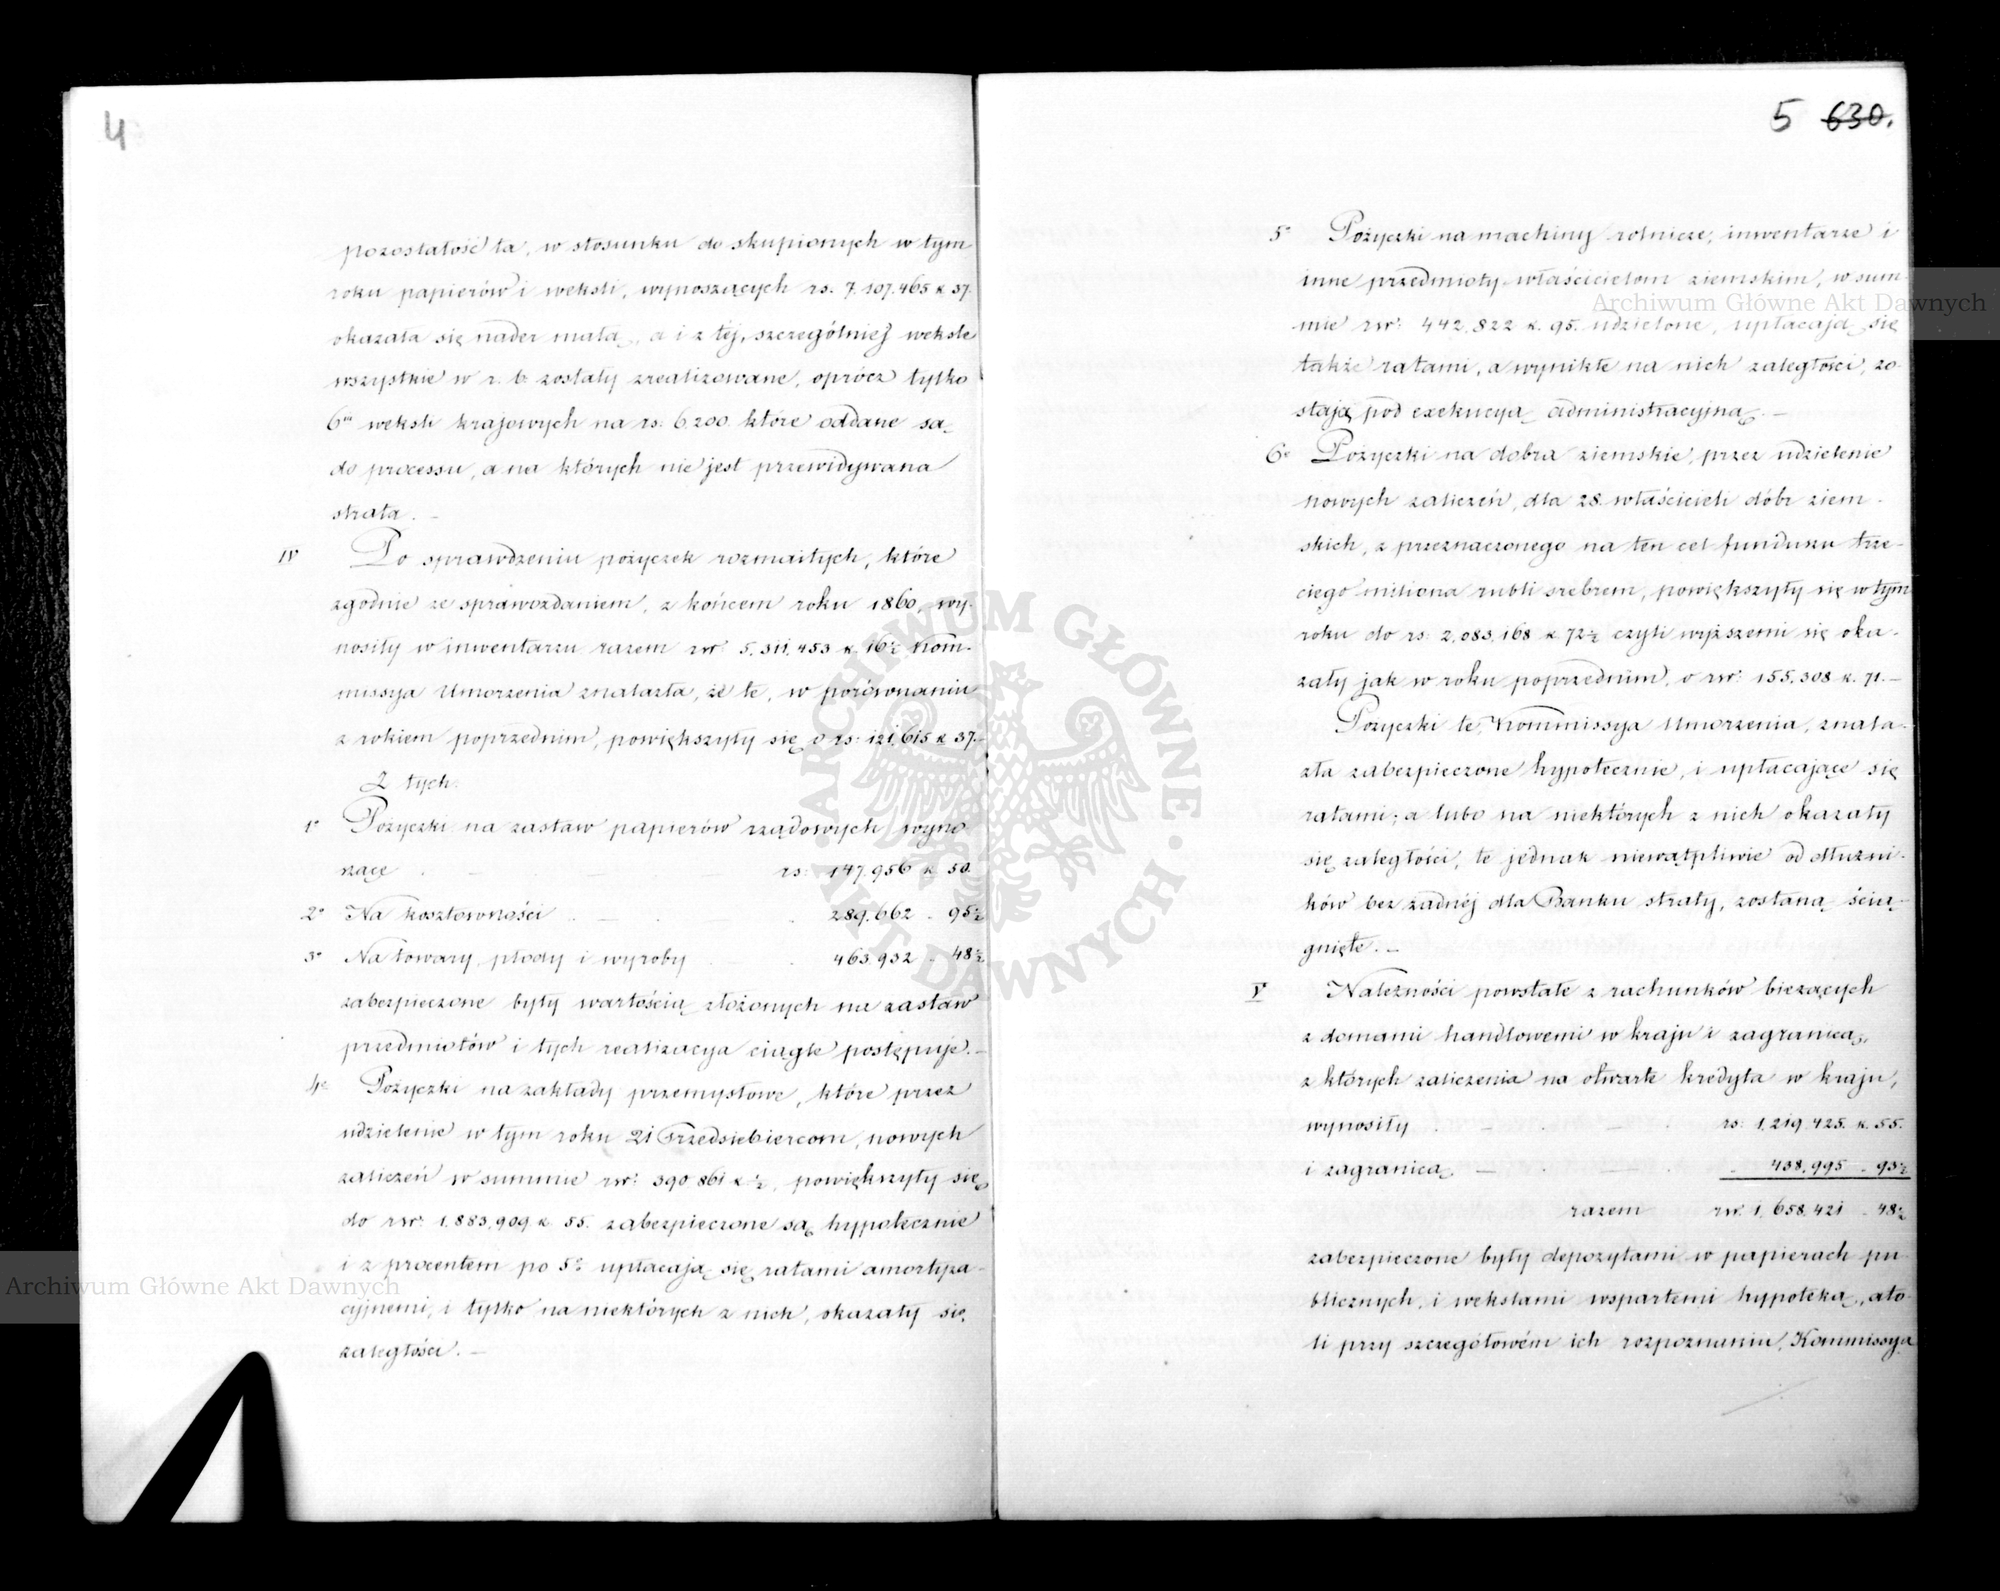 4
pozostałość ta, w stosunku do skupionych w tym
roku papierów i weksli, wynoszących rs. 7.107.465 k 37.
okazała się nader małą, a i z tej, szczególniej weksle
wszystkie w r. b. zostały zrealizowane, oprócz tylko
6iu weksli krajowych na rs. 6.200. które oddane są
do processu, a na których nie jest przewidywana
strata. —
IV Po sprawdzeniu pożyczek rozmaitych, które
zgodnie ze sprawozdaniem, z końcem roku 1860, wy-
nosiły w inwentarzu razem rsr: 5.311.453 k. 16½ Kom-
missya Umorzenia znalazła, że te, w porównaniu
z rokiem poprzednim, powiększyły się o rs: 121,615 k 37.—
Z tych.
1o Pożyczki na zastaw papierów rządowych wyno
szące rs: 147.956 k 50.
2o Na kosztowności 289.662 . 95½
3o Na towary, płody i wyroby 463.932 . 48½
zabezpieczone były wartością złożonych na zastaw
przedmiotów i tych realizacya ciągle postępuje. —
4o Pożyczki na zakłady przemysłowe, które przez
udzielenie w tym roku 21 Przedsiebiercom, nowych
zaliczeń w summie rsr: 390 861 k ½, powiększyły się
do rsr: 1.883,909 k 55. zabezpieczone są hypotecznie
i z procentem po 5% upłacają się ratami amortyza-
cyjnemi, i tylko na niektórych z nich, okazały się
zaległości. —
5 630.
5o Pożyczki na machiny rolnicze, inwentarze i
inne przedmioty właścicielom ziemskim, w sum-
mie rsr: 442.822 k. 95. udzielone, upłacają się
także ratami, a wynikłe na nich zaległości, zo-
stają pod exekucyą administracyjną. —
6o Pożyczki na dobra ziemskie, przez udzielenie
nowych zaliczeń, dla 28. właścicieli dóbr ziem-
skich, z przeznaczonego na ten cel funduszu trze-
ciego miliona rubli srebrem, powiększyły się w tym
roku do rs: 2.083,168 k 72½ czyli wyższemi się oka-
zały jak w roku poprzednim, o rsr: 155.308 k. 71.—
Pożyczki te, Kommissya Umorzenia, znala-
zła zabezpieczone hypotecznie, i upłacające się
ratami; a lubo na niektórych z nich okazały
się zaległości, te jednak niewątpliwie od dłużni-
ków bez żadnéj dla Banku straty, zostaną ścią-
gnięte. —
V Należności powstałe z rachunków bieżących
z domami handlowemi w kraju i zagranicą,
z których zaliczenia na otwarte kredyta w kraju,
wynosiły rs: 1.219.425. k. 55.
i zagranicą — 438.995 . 93½
razem rsr. 1,658.421 . 48½
zabezpieczone były depozytami w papierach pu-
blicznych, i wekslami wspartemi hypoteką, ato-
li przy szczegółowém ich rozpoznaniu, Kommissya
Archiwum Główne Akt Dawnych
Archiwum Główne Akt Dawnych
ARCHIWUM GŁÓWNE AKT DAWNYCH